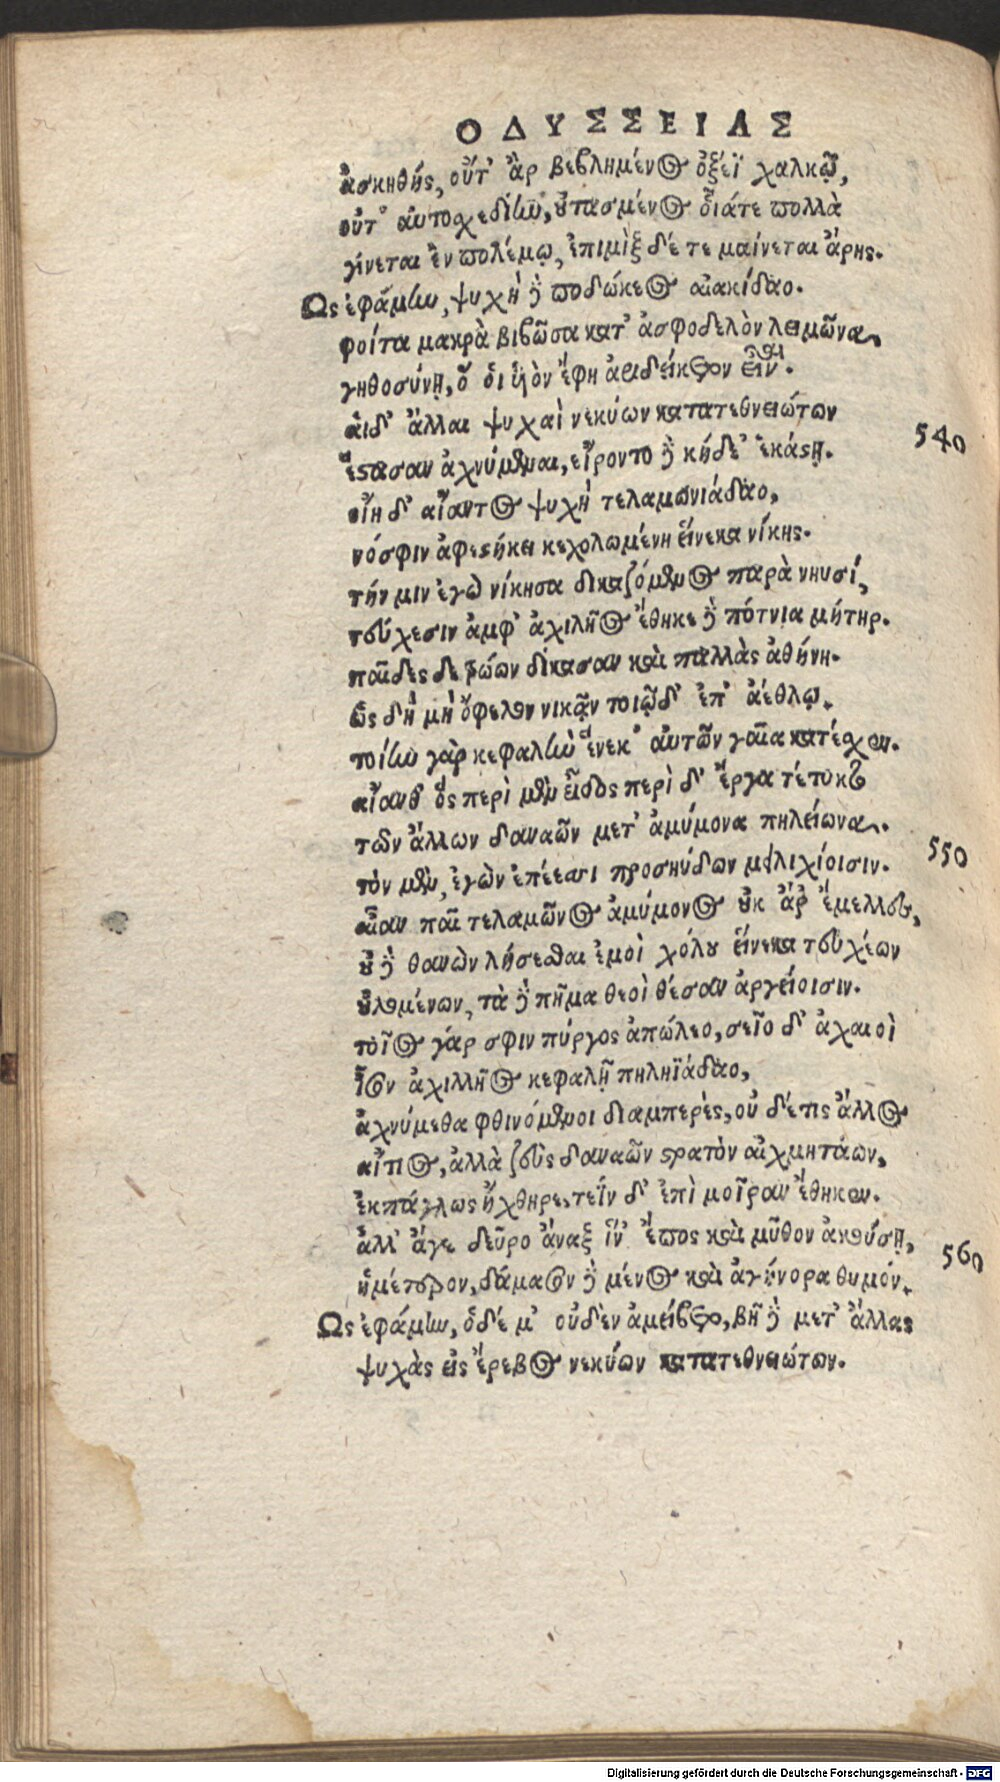 ΟΔΥΣΣΕΙΑΣ
ἀσκηθής, οὔτ' ἂρ βεβλημένος ὀξέϊ χαλκῷ,
οὔτ' αὐτοσχεδίην, οὐτασμένος οἷάτε πολλὰ
γίνεται ἐν πολέμῳ, ἐπιμὶξ δέ τε μαίνεται ἄρης.
Ὣς ἐφάμην, ψυχὴ δὲ ποδώκεος αἰακίδαο.
φοίτα μακρὰ βιβῶσα κατ' ἀσφοδελὸν λειμῶνα,
γηθοσύνῃ, ὅ οἱ υἱὸν ἔφη ἀριδείκετον εἶναι.
αἱ δ' ἄλλαι ψυχαὶ νεκύων κατατεθνειώτων
540
ἕστασαν ἀχνύμεναι, εἴροντο δὲ κήδε' ἑκάστη.
οἴη δ' αἴαντος ψυχή τελαμωνιάδαο,
νόσφιν ἀφεστήκει κεχολωμένη εἵνεκα νίκης.
τήν μιν ἐγὼ νίκησα δικαζόμενος παρὰ νηυσί,
τεύχεσιν ἀμφ' ἀχιλῆος ἔθηκε δὲ πότνια μήτηρ.
παῖδες δὲ τρώων δίκασαν καὶ παλλὰς ἀθήνη.
ὡς δὴ μὴ ὄφελον νικᾷν τοιῷδ' ἐπ' ἀέθλῳ.
τοίην γὰρ κεφαλὴν ἕνεκ' αὐτῶν γαῖα κατέσχεν.
αἴανθ' ὃς περὶ μὲν εἶδος περὶ δ' ἔργα τέτυκτο
τῶν ἄλλων δαναῶν μετ' ἀμύμονα πηλείωνα.
550
τὸν μὲν, ἐγὼν ἐπέεσσι προσηύδων μειλιχίοισιν.
αἶαν παῖ τελαμῶνος ἀμύμονος οὐκ ἄρ' ἔμελλες,
οὐδὲ θανὼν λήσεσθαι ἐμοὶ χόλου εἵνεκα τευχέων
οὐλομένων, τὰ δὲ πῆμα θεοὶ θέσαν ἀργείοισιν.
τοῖος γάρ σφιν πύργος ἀπώλεο, σεῖο δ' ἀχαιοὶ
ἶσον ἀχιλλῆος κεφαλῇ πηληϊάδαο,
ἀχνύμεθα φθινόμενοι διαμπερὲς, οὐ δέ τις ἄλλος
αἴτιος, ἀλλὰ ζεὺς δαναῶν στρατὸν αἰχμητάων,
ἐκπάγλως ἤχθηρε, τεῒν δ' ἐπὶ μοῖραν ἔθηκεν.
ἀλλ' ἄγε δεῦρο ἄναξ ἵν' ἔπος καὶ μῦθον ἀκούσῃ,
560
ἡμέτερον, δάμασον δὲ μένος καὶ ἀγήνορα θυμόν.
Ὣς ἐφάμην, ὁ δέ μ' οὐδὲν ἀμείβετο, βῆ δὲ μετ' ἄλλας
ψυχὰς εἰς ἔρεβος νεκύων κατατεθνειώτων.
Digitalisierung gefördert durch die Deutsche Forschungsgemeinschaft - DFG